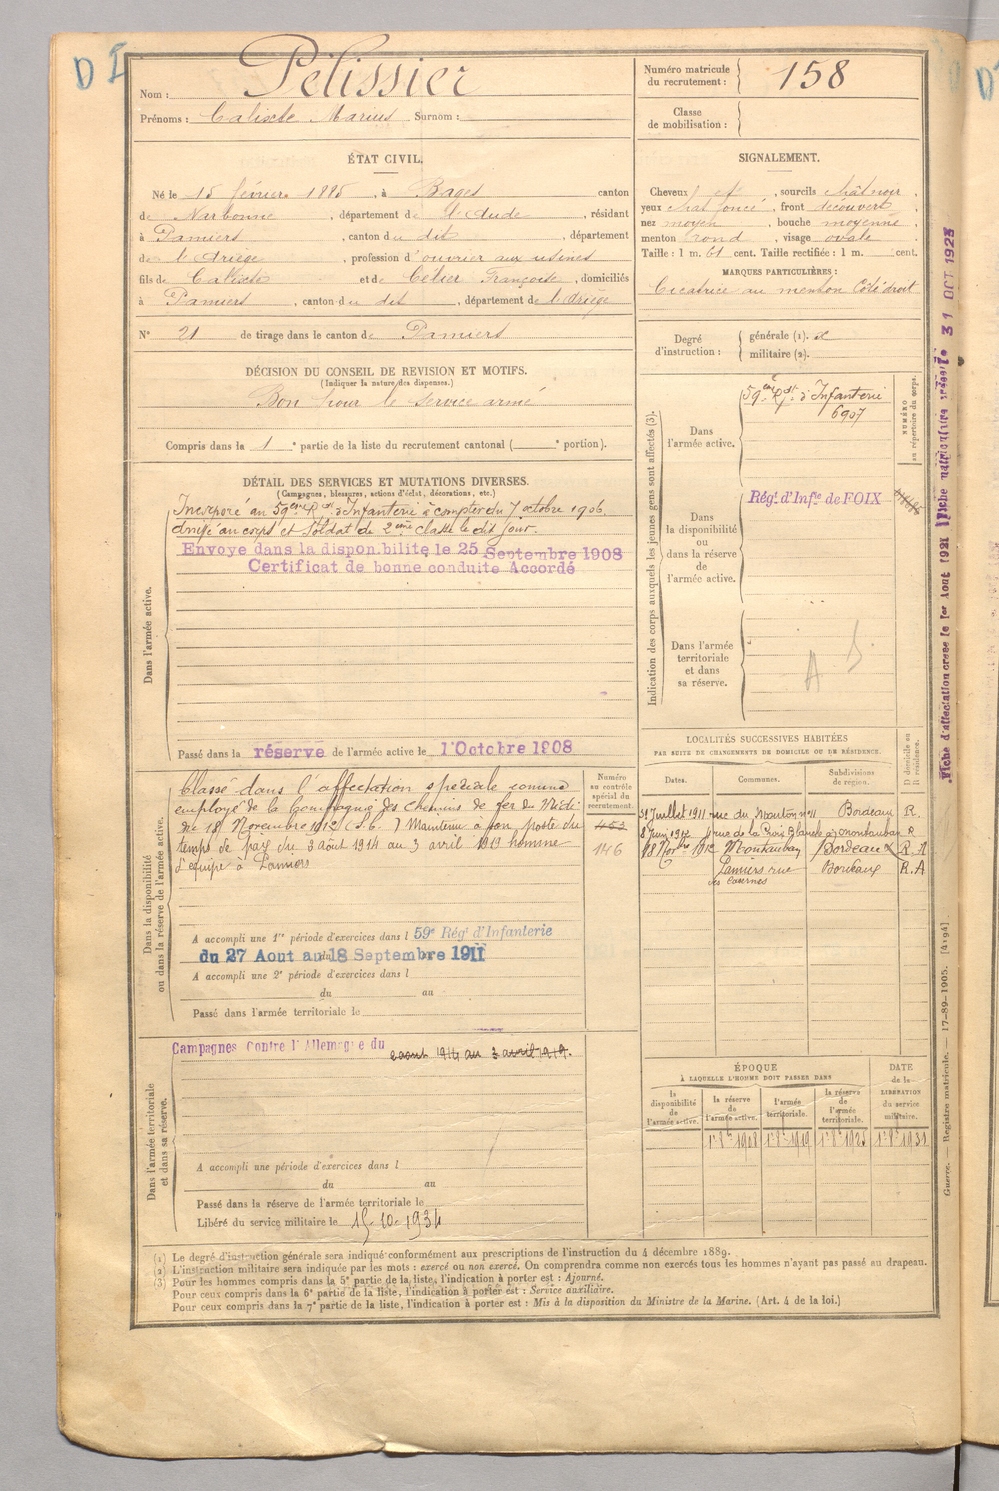 D I
Nom : Pélissier
Prénoms : Calixte Marius Surnom :
Numéro matricule
du recrutement : 158
Classe
de mobilisation :
ÉTAT CIVIL.
Né le 15 février 1885, à Bages canton
de Narbonne, département de l'Aude, résidant
à Pamiers, canton du dit, département
de l'Ariège, profession d'ouvrier aux usines
fils de Calixte et de Célier Françoise, domiciliés
à Pamiers, canton du dit, département de l'Ariège
N° 21 de tirage dans le canton de Pamiers
SIGNALEMENT.
Cheveux et, sourcils chât noir,
yeux chat foncé, front découvert,
nez moyen, bouche moyenne
menton rond, visage ovale
Taille : 1 m. 61 cent. Taille rectifiée : 1 m. cent.
MARQUES PARTICULIÈRES :
Cicatrice au menton Côté droit
Degré
d'instruction :
générale (1).
militaire (2).
DÉCISION DU CONSEIL DE REVISION ET MOTIFS.
(Indiquer la nature des dispenses.)
Bon pour le service armé
Compris dans la 1e partie de la liste du recrutement cantonal ( e portion).
DÉTAIL DES SERVICES ET MUTATIONS DIVERSES.
(Campagnes, blessures, actions d'éclat, décorations, etc.)
Dans l'armée active.
Incorporé au 59ème Rgt d'Infanterie à compter du 7 octobre 1906
arrivé au corps et Soldat de 2ème classe le dit jour.
Envoye dans la disponibilite le 25 Septembre 1908
Certificat de bonne conduite Accordé
Passé dans la réserve de l'armée active le 1 Octobre 1908
Indication des corps auxquels les jeunes gens sont affectés (3).
NUMÉRO
au répertoire du corps.
Dans
l'armée active.
59e Rgt d'Infanterie
6907
Dans
la disponibilité
ou
dans la réserve
de
l'armée active.
Rég. d'Infie de FOIX
Dans l'armée
territoriale
et dans
sa réserve.
A
Fiche d'affectation creee le 1er Aout 1921 Fiche matriculaire créée le 31 OCT 1925
Dans la disponibilité
ou dans la réserve de l'armée active.
Classé dans l'affectation spéciale comme
employé de la Compagnie des chemins de fer du Midi
18 Novembre 1912 (S.C. ) Maintenu à son poste du
temps de paix du 3 Août 1914 au 3 avril 1919 homme
d'équipe à Pamiers
Numéro
au contrôle
spécial du
recrutement.
453
146
A accompli une 1re période d'exercices dans l 59e Rég. d'Infanterie
du 27 Aout au 18 Septembre 1911
A accompli une 2e période d'exercices dans l
du au
Passé dans l'armée territoriale le
LOCALITÉS SUCCESSIVES HABITÉES
PAR SUITE DE CHANGEMENTS DE DOMICILE OU DE RÉSIDENCE.
Dates.
Communes.
Subdivisions
de région.
D domicile ou
R résidence.
31 Juillet 1911 rue du Mouton n° 11 Bordeaux R.
8 Juin 1912 rue de la Croix Blanche à Montauban R
18 Nov bre 1912 Montauban Bordeaux R.A
Pamiers rue Bordeaux R.A
des Casernes
Dans l'armée territoriale
et dans sa réserve.
Campagnes Contre l'Allemagne du
2 août 1914 au 3 avril 1919.
A accompli une période d'exercices dans l
du au
Passé dans la réserve de l'armée territoriale le
Libéré du service militaire le 15-10-1934
ÉPOQUE
À LAQUELLE L'HOMME DOIT PASSER DANS
la
disponibilité
de
l'armée active.
la réserve
de
l'armée active.
l'armée
territoriale.
la réserve
de
l'armée
territoriale.
DATE
de la
LIBÉRATION
du service
militaire.
1er 8bre 1908 1er 8bre 1919 1er 8bre 1925 1er 8bre 1931
(1) Le degré d'instruction générale sera indiqué conformément aux prescriptions de l'instruction du 4 décembre 1889.
(2) L'instruction militaire sera indiquée par les mots : exercé ou non exercé. On comprendra comme non exercés tous les hommes n'ayant pas passé au drapeau.
(3) Pour les hommes compris dans la 5e partie de la liste, l'indication à porter est : Ajourné.
Pour ceux compris dans la 6e partie de la liste, l'indication à porter est : Service auxiliaire.
Pour ceux compris dans la 7e partie de la liste, l'indication à porter est : Mis à la disposition du Ministre de la Marine. (Art. 4 de la loi.)
Guerre. — Registre matricule. — 17-89-1905. [4194]